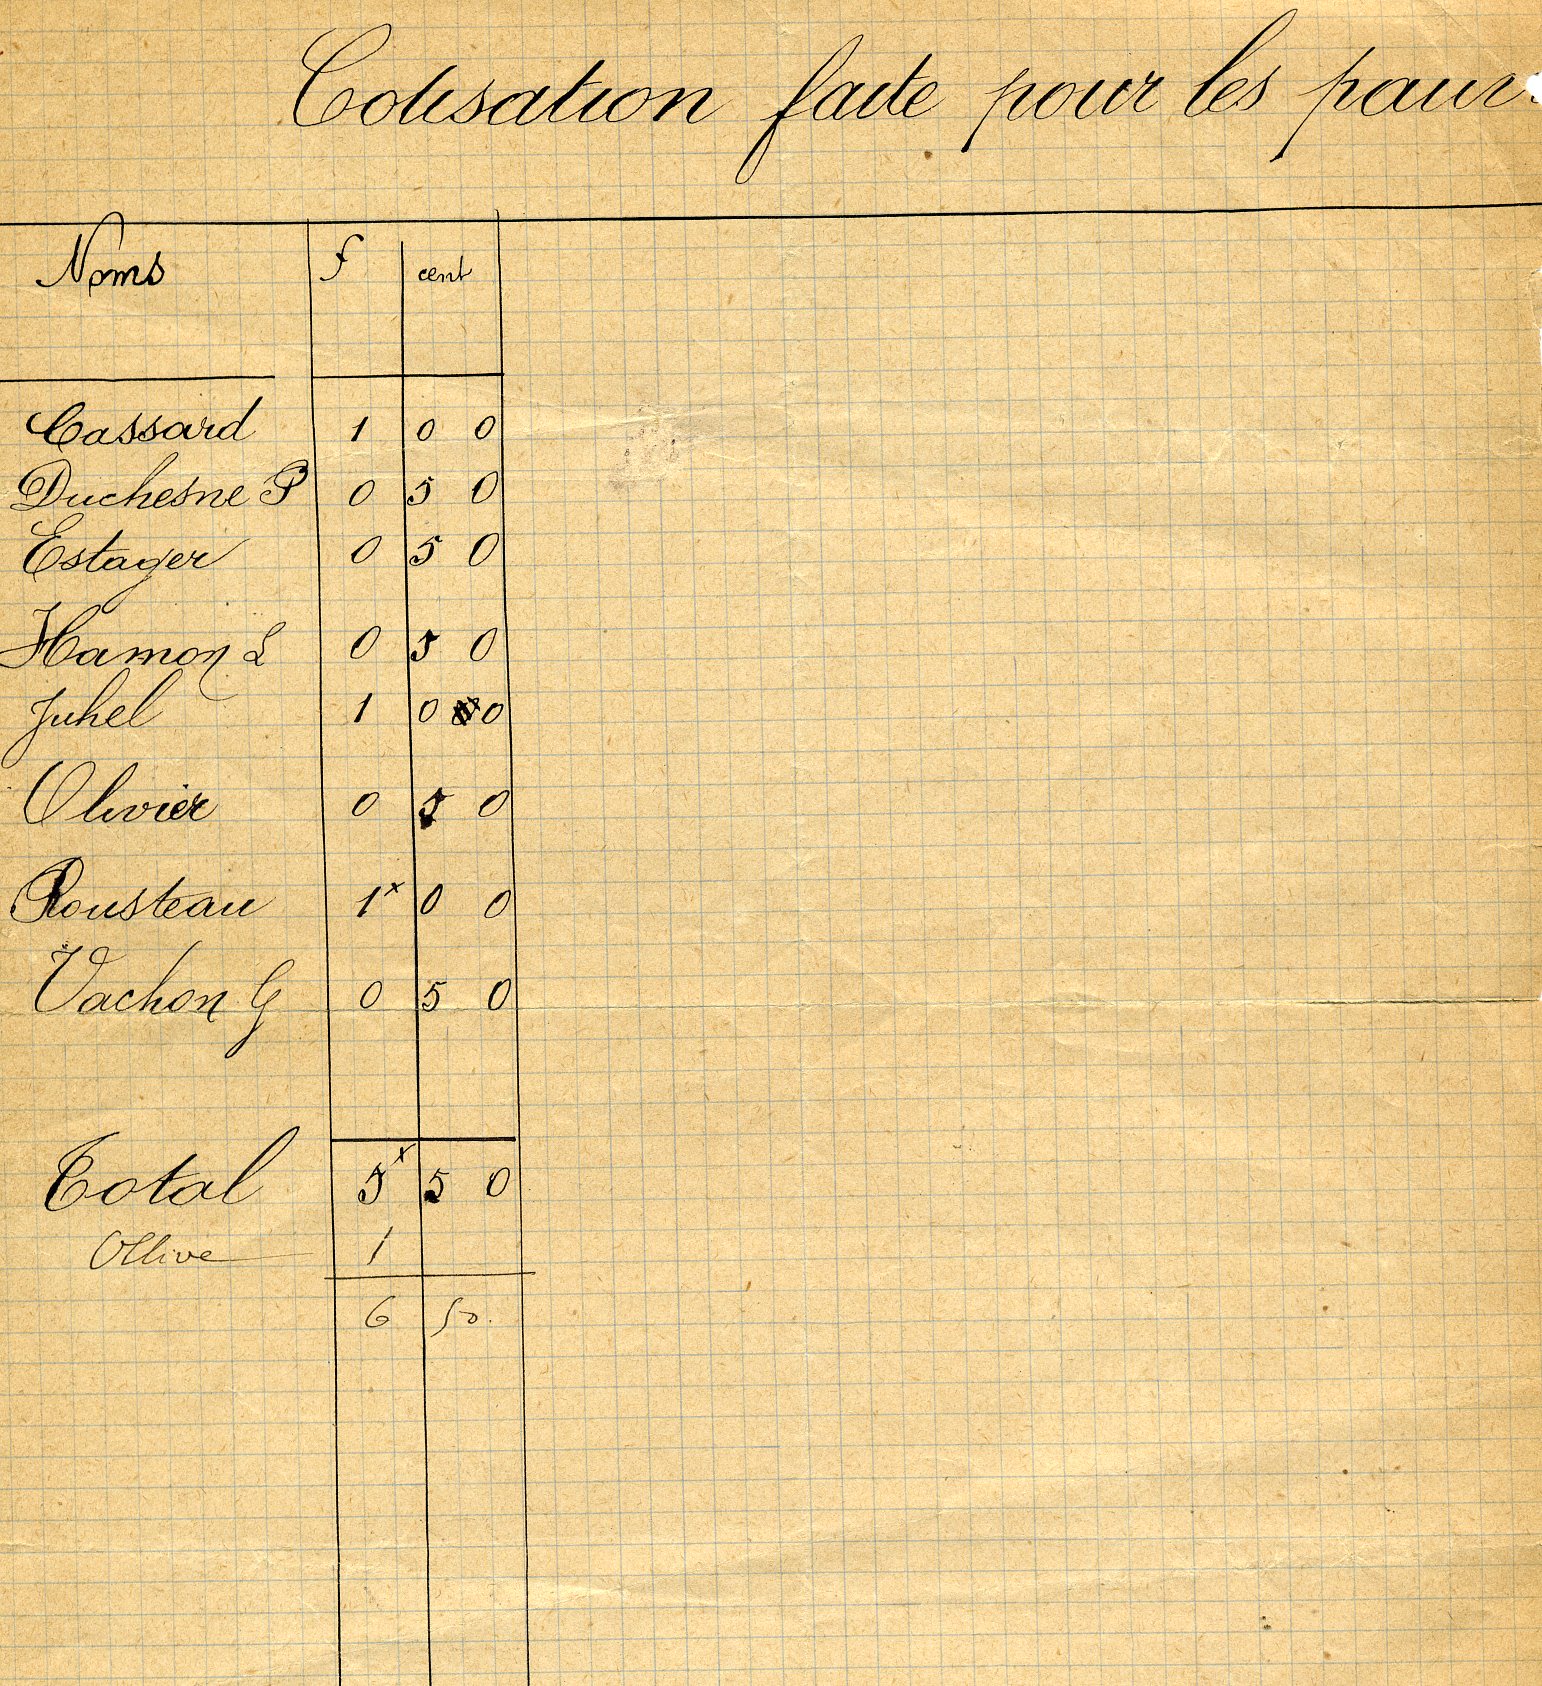 Cotisation faite pour les pauv
Noms f cent
Cassard 1 0 0
Duchesne P 0 5 0
Estager 0 5 0
Hamon L 0 5 0
Juhel 1 0 0
Olivier 0 5 0
Rousteau 1x 0 0
Vachon G 0 5 0
Total 5x 5 0
Ollive 1
6 50.